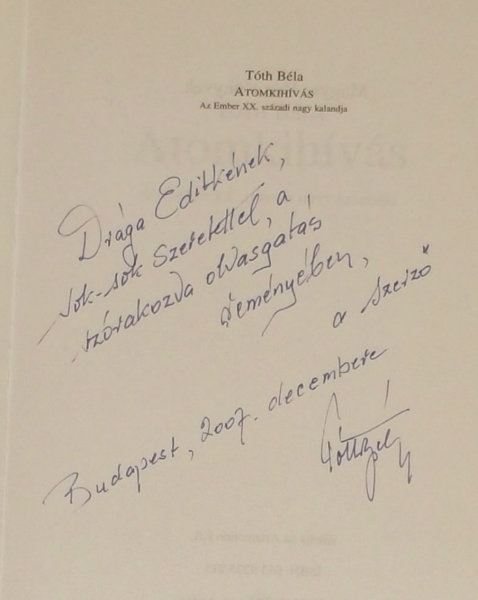 Tóth Béla
ATOMKIHÍVÁS
Az Ember XX. századi nagy kalandja
Drága Editkének,
sok-sok szeretettel, a
szórakozva olvasgatás
reményében,
a szerző
Budapest, 2007. decembere
Tóth Béla
Atomkihívás